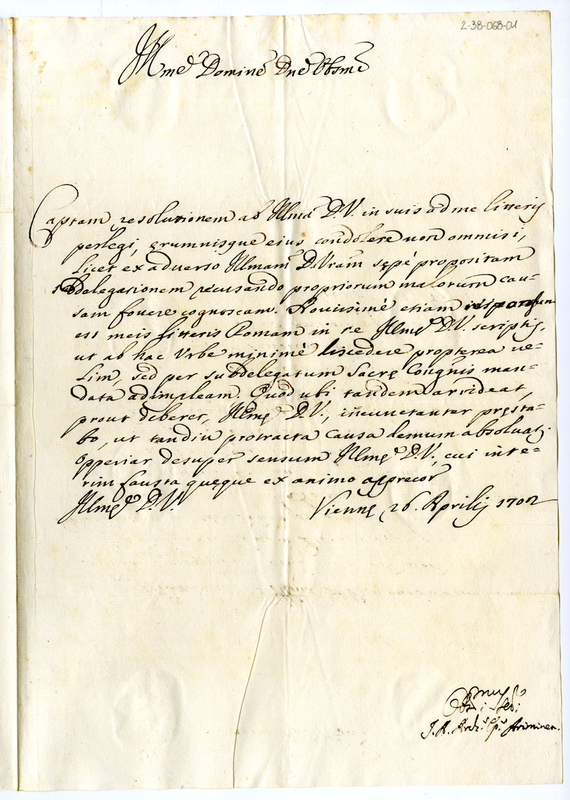 2-38-068-01
Illme Domine Dne Obsme
Captam resolutionem ab Illma D.V. in suis ad me litteris
perlegi, ęrumnisque eius condolere non ommisi,
licet ex adverso Illmam D.Vram sępè propositam
subdelegationem recusando propriorum malorum cau-
sam fovere cognoscam. Novissimè etiam responsum
est meis litteris Romam in re Illmę D.V. scriptis,
ut ab hac Urbe minimè discedere propterea ve-
lim, sed per subdelegatum Sacrę Congnis man-
data adimpleam. Quod ubi tandem arrideat,
prout deberet, Illmę D.V., incunctanter pręsta-
bo, ut tandiu protracta causa demum absolvat.
Opperiar desuper sensum Illmę D.V., cui inte-
rim fausta quęque ex animo apprecor
Illmę D.V.
Viennę 26. Aprilis 1702
Addmus
Obs: Ser:
J. A. Archi. Epi. Ariminen.